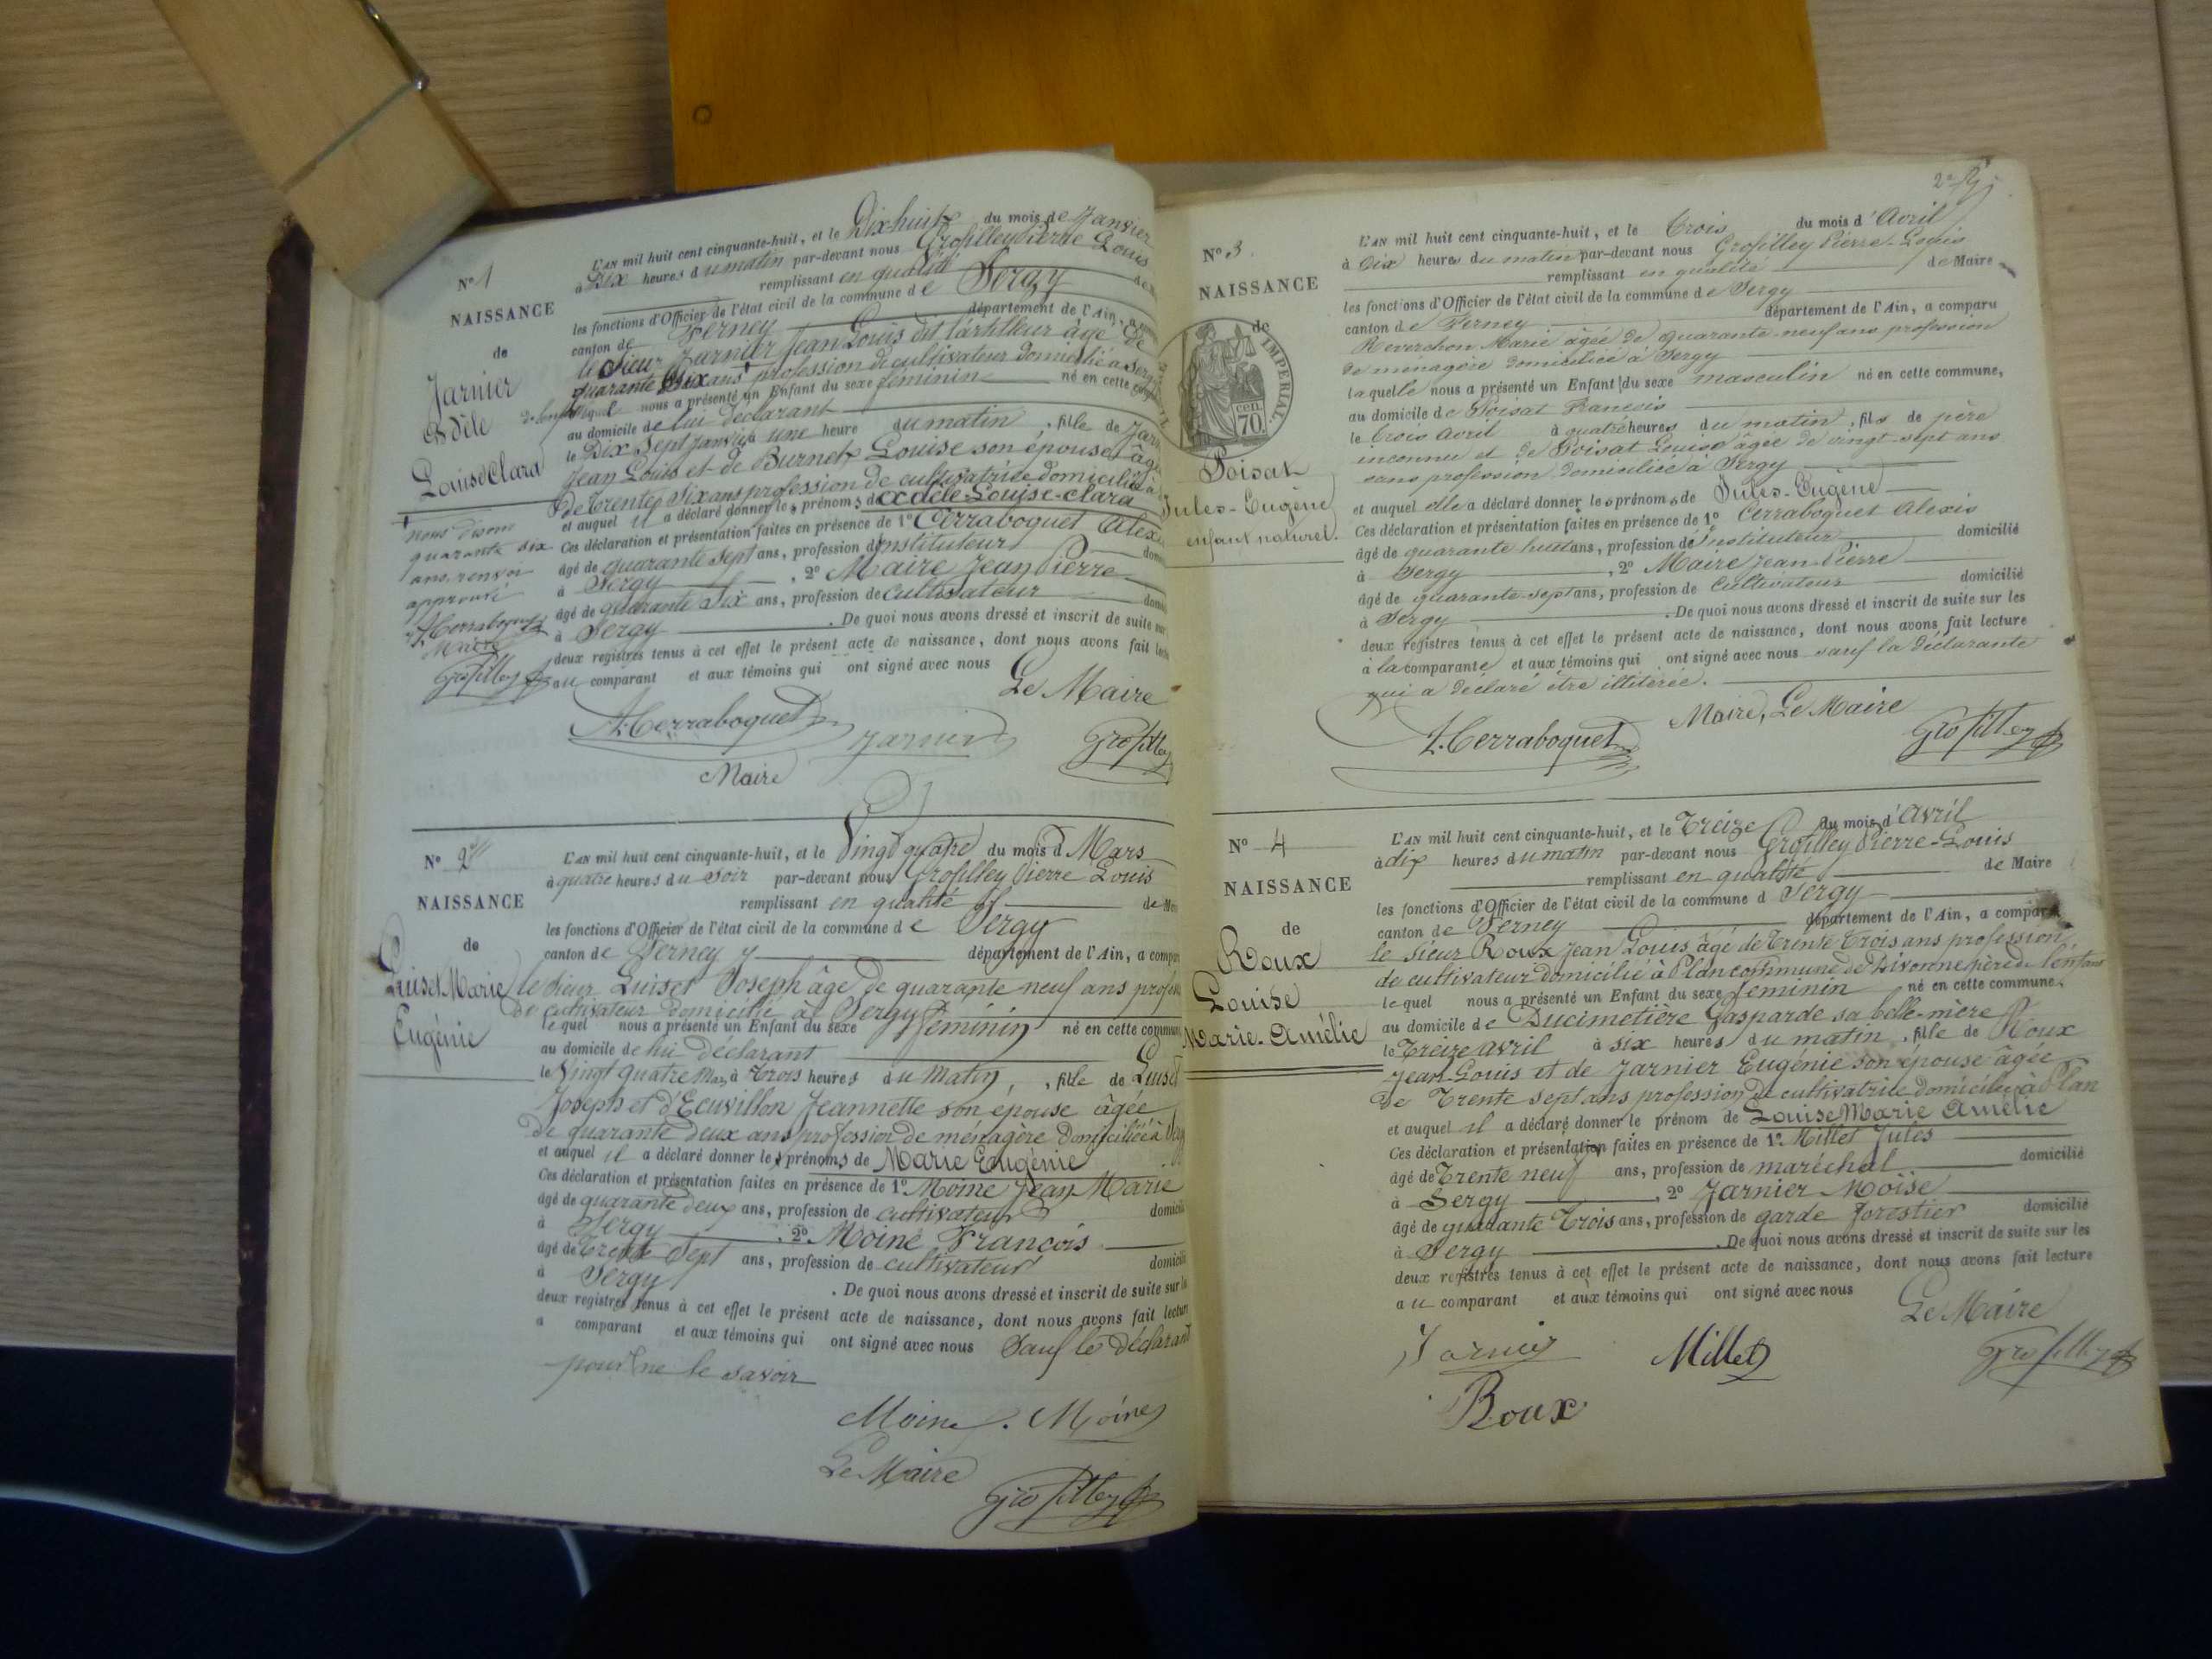 Nº 1
NAISSANCE
de
Jarnier
Adèle
Louise Clara
nous disons
quarante six
ans, renvoi
approuvé
A. Cerraboquet
Maire
Grofilley
L'AN mil huit cent cinquante-huit, et le Dix-huit du mois de Janvier
à Dix heures du matin par-devant nous Grofilley Pierre Louis
remplissant en qualité
les fonctions d'Officier de l'état civil de la commune de Sergy
canton de Ferney département de l'Ain,
le Sieur Jarnier Jean Louis dit l'artilleur âgé de
quarante Six ans profession de cultivateur domicilié à Sergy
lequel nous a présenté un Enfant du sexe féminin né en cette
au domicile de lui déclarant
le Dix Sept Janvier à une heure du matin, fille de
Jean Louis et de Burnet Louise son épouse âgée
de Trente Six ans profession de cultivatrice domiciliée à
et auquel il a déclaré donner les prénoms d'Adèle-Louise-Clara
Ces déclaration et présentation faites en présence de 1º Cerraboquet
âgé de quarante Sept ans, profession d'instituteur
à Sergy, 2º Maire Jean Pierre
âgé de quarante Six ans, profession de Cultivateur
à Sergy. De quoi nous avons dressé et inscrit de suite sur
deux registres tenus à cet effet le présent acte de naissance, dont nous avons fait
au comparant et aux témoins qui ont signé avec nous
Le Maire
A. Cerraboquet Jarnier Grofilley
Maire
Nº 2
NAISSANCE
de
Luiset Marie
Eugénie
L'AN mil huit cent cinquante-huit, et le Vingt quatre du mois d Mars
à quatre heures du Soir par-devant nous Grofilley Pierre Louis
remplissant en qualité de
les fonctions d'Officier de l'état civil de la commune de Sergy
canton de Ferney département de l'Ain, a
le Sieur Luiset Joseph âgé de quarante neuf ans
de cultivateur domicilié à Sergy
lequel nous a présenté un Enfant du sexe féminin né en cette
au domicile de lui déclarant
le Vingt quatre Mars à Trois heures du Matin, fille de Luiset
Joseph et d'Ecuvillon Jeannette son épouse âgée
de quarante deux ans profession de ménagère domiciliée à
et auquel il a déclaré donner les prénoms de Marie Eugénie
Ces déclaration et présentation faites en présence de 1º Moine Jean Marie
âgé de quarante deux ans, profession de cultivateur
à Sergy, 2º Moine François
âgé de Trente Sept ans, profession de cultivateur
à Sergy. De quoi nous avons dressé et inscrit de suite sur
deux registres tenus à cet effet le présent acte de naissance, dont nous avons fait lecture
a comparant et aux témoins qui ont signé avec nous Sauf le déclarant
pour ne le savoir
Moine. Moine
Le Maire
Grofilley
Nº 3
NAISSANCE
de
IMPERIAL.
70 cen
Poisat
Jules-Eugène
enfant naturel.
L'AN mil huit cent cinquante-huit, et le Trois du mois d'Avril
à Dix heures du matin par-devant nous Grofilley Pierre-Louis
remplissant en qualité de Maire
les fonctions d'Officier de l'état civil de la commune de Sergy
canton de Ferney département de l'Ain, a comparu
Reverchon Marie âgée de quarante-neuf ans profession
de ménagère domiciliée à Sergy
laquelle nous a présenté un Enfant du sexe masculin né en cette commune,
au domicile de Poisat François
le Trois avril à quatre heures du matin, fils de père
inconnu et de Poisat Louise âgée de vingt-sept ans
sans profession domiciliée à Sergy
et auquel elle a déclaré donner les prénoms de Jules-Eugène
Ces déclaration et présentation faites en présence de 1º Cerraboquet Alexis
âgé de quarante huit ans, profession d'Instituteur domicilié
à Sergy, 2º Maire Jean-Pierre
âgé de quarante-sept ans, profession de Cultivateur domicilié
à Sergy. De quoi nous avons dressé et inscrit de suite sur les
deux registres tenus à cet effet le présent acte de naissance, dont nous avons fait lecture
à la comparante et aux témoins qui ont signé avec nous sauf la déclarante
qui a déclaré être illitérée.
A. Cerraboquet Maire, Le Maire Grofilley
Nº 4
NAISSANCE
de
Roux
Louise
Marie-Amélie
L'AN mil huit cent cinquante-huit, et le Treize du mois d'Avril
à dix heures du matin par-devant nous Grofilley Pierre-Louis
remplissant en qualité de Maire
les fonctions d'Officier de l'état civil de la commune d Sergy
canton de Ferney département de l'Ain, a comparu
le Sieur Roux Jean Louis âgé de Trente Trois ans profession
de cultivateur domicilié à Plan commune de Divonne père de l'enfant
lequel nous a présenté un Enfant du sexe féminin né en cette commune,
au domicile de Ducimetière Gasparde sa belle-mère
le Treize avril à six heures du matin, fille de Roux
Jean-Louis et de Jarnier Eugénie son épouse âgée
de Trente sept ans profession de cultivatrice domiciliée à Plan
et auquel il a déclaré donner le prénom de Louise Marie Amélie
Ces déclaration et présentation faites en présence de 1º Millet Jules
âgé de Trente neuf ans, profession de maréchal domicilié
à Sergy, 2º Jarnier Moïse
âgé de quarante Trois ans, profession de garde forestier domicilié
à Sergy. De quoi nous avons dressé et inscrit de suite sur les
deux registres tenus à cet effet le présent acte de naissance, dont nous avons fait lecture
au comparant et aux témoins qui ont signé avec nous
Le Maire
Jarnier Millet Grofilley
Roux